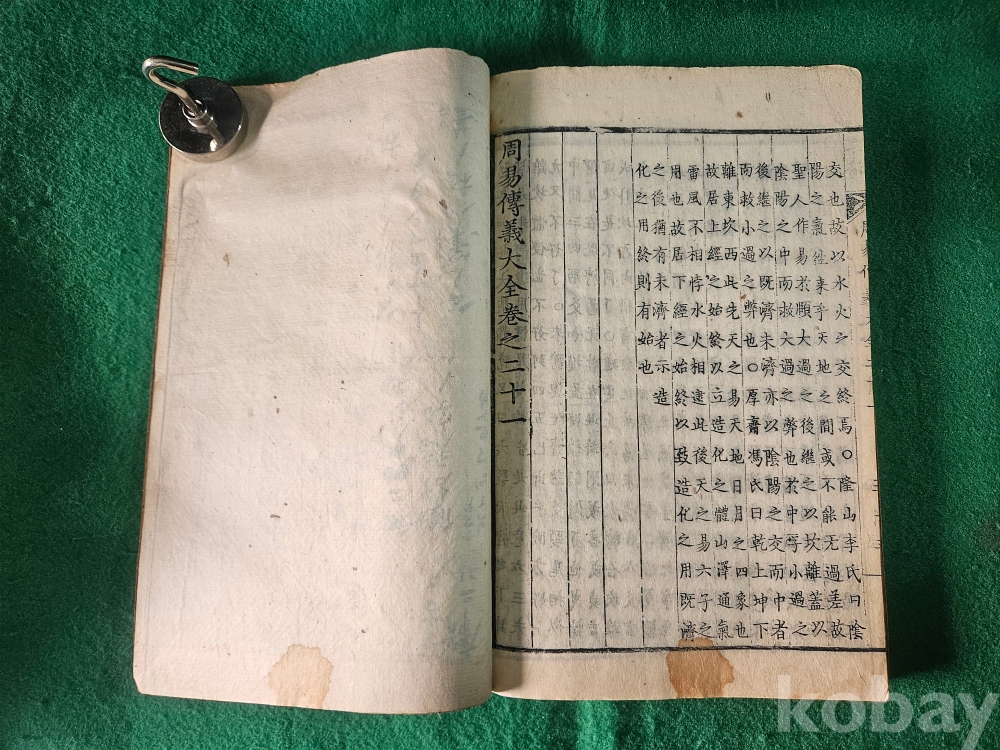 交也故以水火之交終焉○隆山李氏曰陰
陽之氣徃來乎天地之間或不能无過差故
聖人作易於頤大過之後継之以坎離蓋以
陰陽之中而救大過之弊也於中孚小過之
後継之以既濟未濟亦以陰陽之交而中者
而救小過之弊也○厚齋馮氏曰乾上坤下
離東坎西此先天之易天地日月之四象也
故居上經之始終以立造化之體山澤通氣
雷風不相悖水火相逮此後天之易六子之
用也故居下經之始終以致造化之用既濟
之後猶有未濟者示造
化之用終則有始也
周易傳義大全卷之二十一
kobay